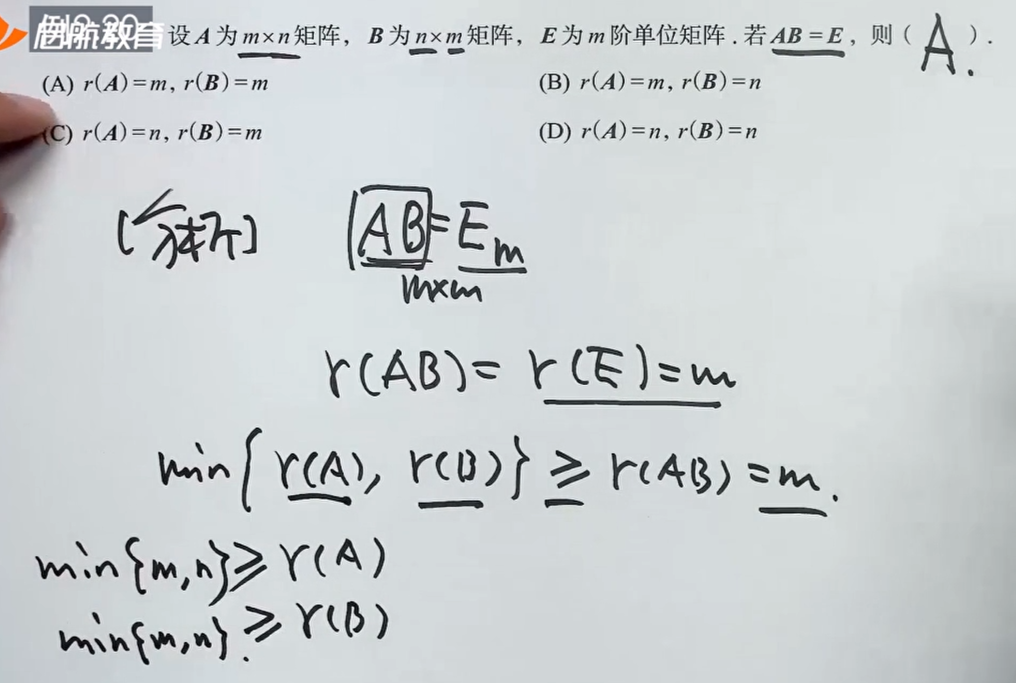 例2.20 启航教育 设A为m×n矩阵，B为n×m矩阵，E为m阶单位矩阵.若AB=E，则（A.）.
(A) r(A)=m, r(B)=m (B) r(A)=m, r(B)=n
(C) r(A)=n, r(B)=m (D) r(A)=n, r(B)=n
[分析] AB=Em
m×m
r(AB)=r(E)=m
min{r(A), r(B)}≥r(AB)=m.
min{m,n}≥r(A)
min{m,n}.≥r(B)